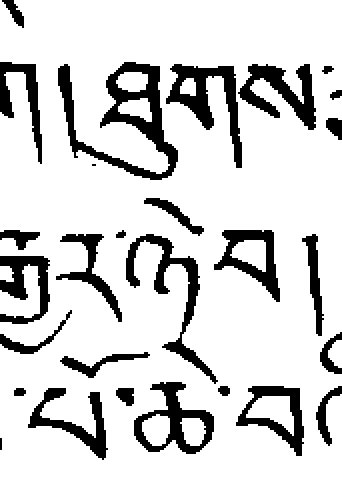 ག། ཐུགས
རྒྱུར་ཉེ་བ།
་པོ་ཆེ་བ